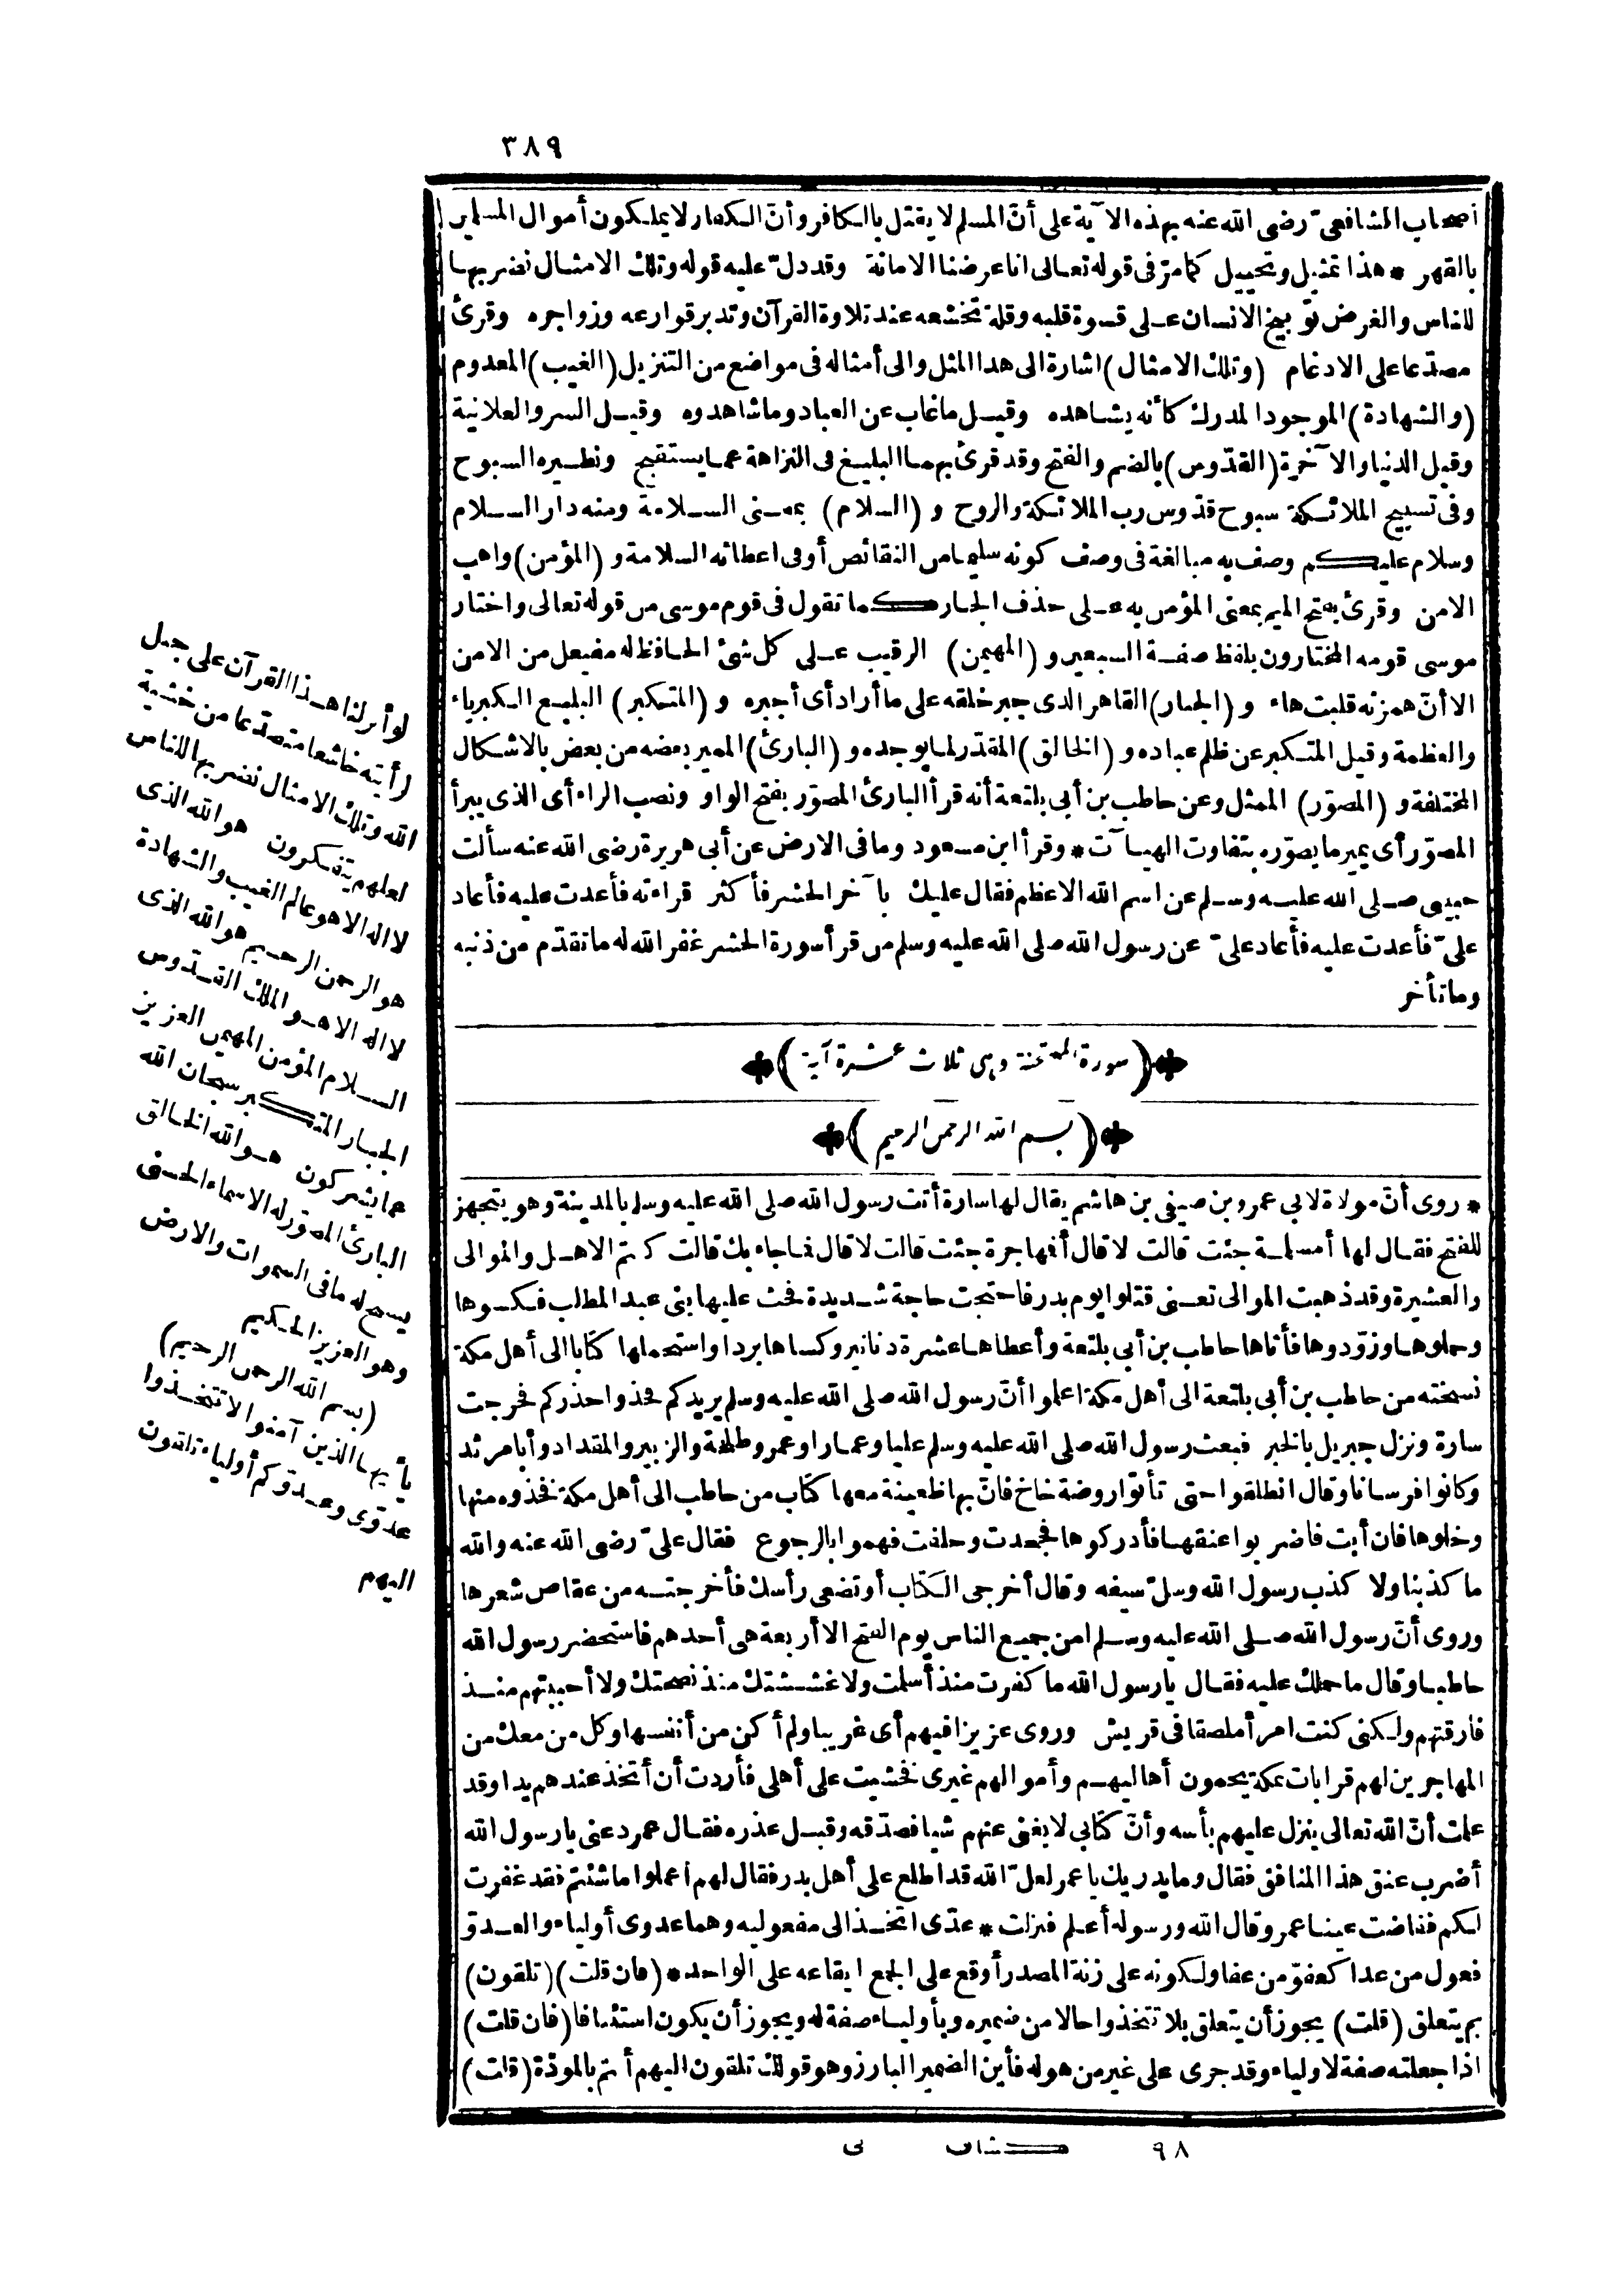 ٣٨٩
أصحاب الشافعىّ رضى الله عنه بهذه الآية على أنّ المسلم لا يقتل بالكافر وأنّ الكفار لا يملكون أموال المسلمين
بالقهر * هذا تمثيل وتخييل كما مرّ فى قوله تعالى انا عرضنا الامانة وقد دلّ عليه قوله وتلك الامثال نضربها
للناس والغرض توبيخ الانسان على قسوة قلبه وقلة تخشعه عند تلاوة القرآن وتدبر قوارعه وزواجره وقرئ
مصدّعا على الادغام (وتلك الامثال) اشارة الى هذا المثل والى أمثاله فى مواضع من التنزيل (الغيب) المعدوم
(والشهادة) الموجود المدرك كأنه يشاهده وقيل ما غاب عن العباد وما شاهدوه وقيل السر والعلانية
وقيل الدنيا والآخرة (القدّوس) بالضم والفتح وقد قرئ بهما البليغ فى النزاهة عما يستقبح ونظيره السبوح
وفى تسبيح الملائكة سبوح قدّوس رب الملائكة والروح و (السلام) بمعنى السلامة ومنه دار السلام
وسلام عليكم وصف به مبالغة فى وصف كونه سليما من النقائص أو فى اعطائه السلامة و (المؤمن) واهب
الامن وقرئ بفتح الميم بمعنى المؤمن به على حذف الجار كما تقول فى قوم موسى من قوله تعالى واختار
موسى قومه المختارون بلفظ صفة السبعين و (المهيمن) الرقيب على كل شئ الحافظ له مفيعل من الامن
الا أنّ همزته قلبت هاء و (الجبار) القاهر الذى جبر خلقه على ما أراد أى أجبره و (المتكبر) البليغ الكبرياء
والعظمة وقيل المتكبر عن ظلم عباده و (الخالق) المقدّر لما يوجده و (البارئ) المميز بعضه من بعض بالاشكال
المختلفة و (المصوّر) الممثل وعن حاطب بن أبى بلتعة أنه قرأ البارئ المصوّر بفتح الواو ونصب الراء أى الذى يبرأ
المصوّر أى يميز ما يصوّره بتفاوت الهيآت * وقرأ ابن مسعود وما فى الارض عن أبى هريرة رضى الله عنه سألت
حبيبى صلى الله عليه وسلم عن اسم الله الاعظم فقال عليك بآخر الحشر فأكثر قراءته فأعدت عليه فأعاد
علىّ فأعدت عليه فأعاد علىّ عن رسول الله صلى الله عليه وسلم من قرأ سورة الحشر غفر الله له ما تقدّم من ذنبه
وما تأخر
(سورة الممتحنة وهى ثلاث عشرة آية)
(بسم الله الرحمن الرحيم)
* روى أنّ مولاة لابى عمرو بن صيفى بن هاشم يقال لها سارة أتت رسول الله صلى الله عليه وسلم بالمدينة وهو يتجهز
للفتح فقال لها أمسلمة جئت قالت لا قال أفمهاجرة جئت قالت لا قال فما جاء بك قالت كنتم الاهل والموالى
والعشيرة وقد ذهبت الموالى تعنى قتلوا يوم بدر فاحتجت حاجة شديدة فحث عليها بنى عبد المطلب فكسوها
وحملوها وزوّدوها فأتاها حاطب بن أبى بلتعة وأعطاها عشرة دنانير وكساها بردا واستحملها كتابا الى أهل مكة
نسخته من حاطب بن أبى بلتعة الى أهل مكة اعلموا أنّ رسول الله صلى الله عليه وسلم يريدكم فخذوا حذركم فخرجت
سارة ونزل جبريل بالخبر فبعث رسول الله صلى الله عليه وسلم عليا وعمارا وعمر وطلحة والزبير والمقداد وأبا مرثد
وكانوا فرسانا وقال انطلقوا حتى تأتوا روضة خاخ فانّ بها ظعينة معها كتاب من حاطب الى أهل مكة فخذوه منها
وخلوها فان أبت فاضربوا عنقها فأدركوها فجحدت وحلفت فهموا بالرجوع فقال علىّ رضى الله عنه والله
ما كذبنا ولا كذب رسول الله وسلّ سيفه وقال أخرجى الكتاب أو تضعى رأسك فأخرجته من عقاص شعرها
وروى أنّ رسول الله صلى الله عليه وسلم امن جميع الناس يوم الفتح الا أربعة هى أحدهم فاستحضر رسول الله
حاطبا وقال ما حملك عليه فقال يا رسول الله ما كفرت منذ أسلمت ولا غششتك منذ نصحتك ولا أحببتهم منذ
فارقتهم ولكنى كنت امرأ ملصقا فى قريش وروى عزيزا فيهم أى غريبا ولم أكن من أنفسها وكل من معك من
المهاجرين لهم قرابات بمكة يحمون أهاليهم وأموالهم غيرى فخشيت على أهلى فأردت أن أتخذ عندهم يدا وقد
علمت أنّ الله تعالى ينزل عليهم بأسه وأنّ كتابى لا يغنى عنهم شيا فصدّقه وقبل عذره فقال عمر دعنى يا رسول الله
أضرب عنق هذا المنافق فقال وما يدريك يا عمر لعلّ الله قد اطلع على أهل بدر فقال لهم اعملوا ما شئتم فقد غفرت
لكم ففاضت عينا عمر وقال الله ورسوله أعلم فنزلت * عدّى اتخذ الى مفعوليه وهما عدوى أولياء والعدوّ
فعول من عدا كعفوّ من عفا ولكونه على زنة المصدر أوقع على الجمع ايقاعه على الواحد * (فان قلت) (تلقون)
بم يتعلق (قلت) يجوز أن يتعلق بلا تتخذوا حالا من ضميره وبأولياء صفة له ويجوز أن يكون استئنافا (فان قلت)
اذا جعلته صفة لاولياء وقد جرى على غير من هو له فأين الضمير البارز وهو قولك تلقون اليهم أنتم بالمودّة (قلت)
لو أنزلنا هذا القرآن على جبل
لرأيته خاشعا متصدّعا من خشية
الله وتلك الامثال نضربها للناس
لعلهم يتفكرون هو الله الذى
لا اله الا هو عالم الغيب والشهادة
هو الرحمن الرحيم هو الله الذى
لا اله الا هو الملك القدّوس
السلام المؤمن المهيمن العزيز
الجبار المتكبر سبحان الله
عما يشركون هو الله الخالق
البارئ المصوّر له الاسماء الحسنى
يسبح له ما فى السموات والارض
وهو العزيز الحكيم
(بسم الله الرحمن الرحيم)
يأيها الذين آمنوا لا تتخذوا
عدوّى وعدوّكم أولياء تلقون
اليهم
٩٨ كشاف نى